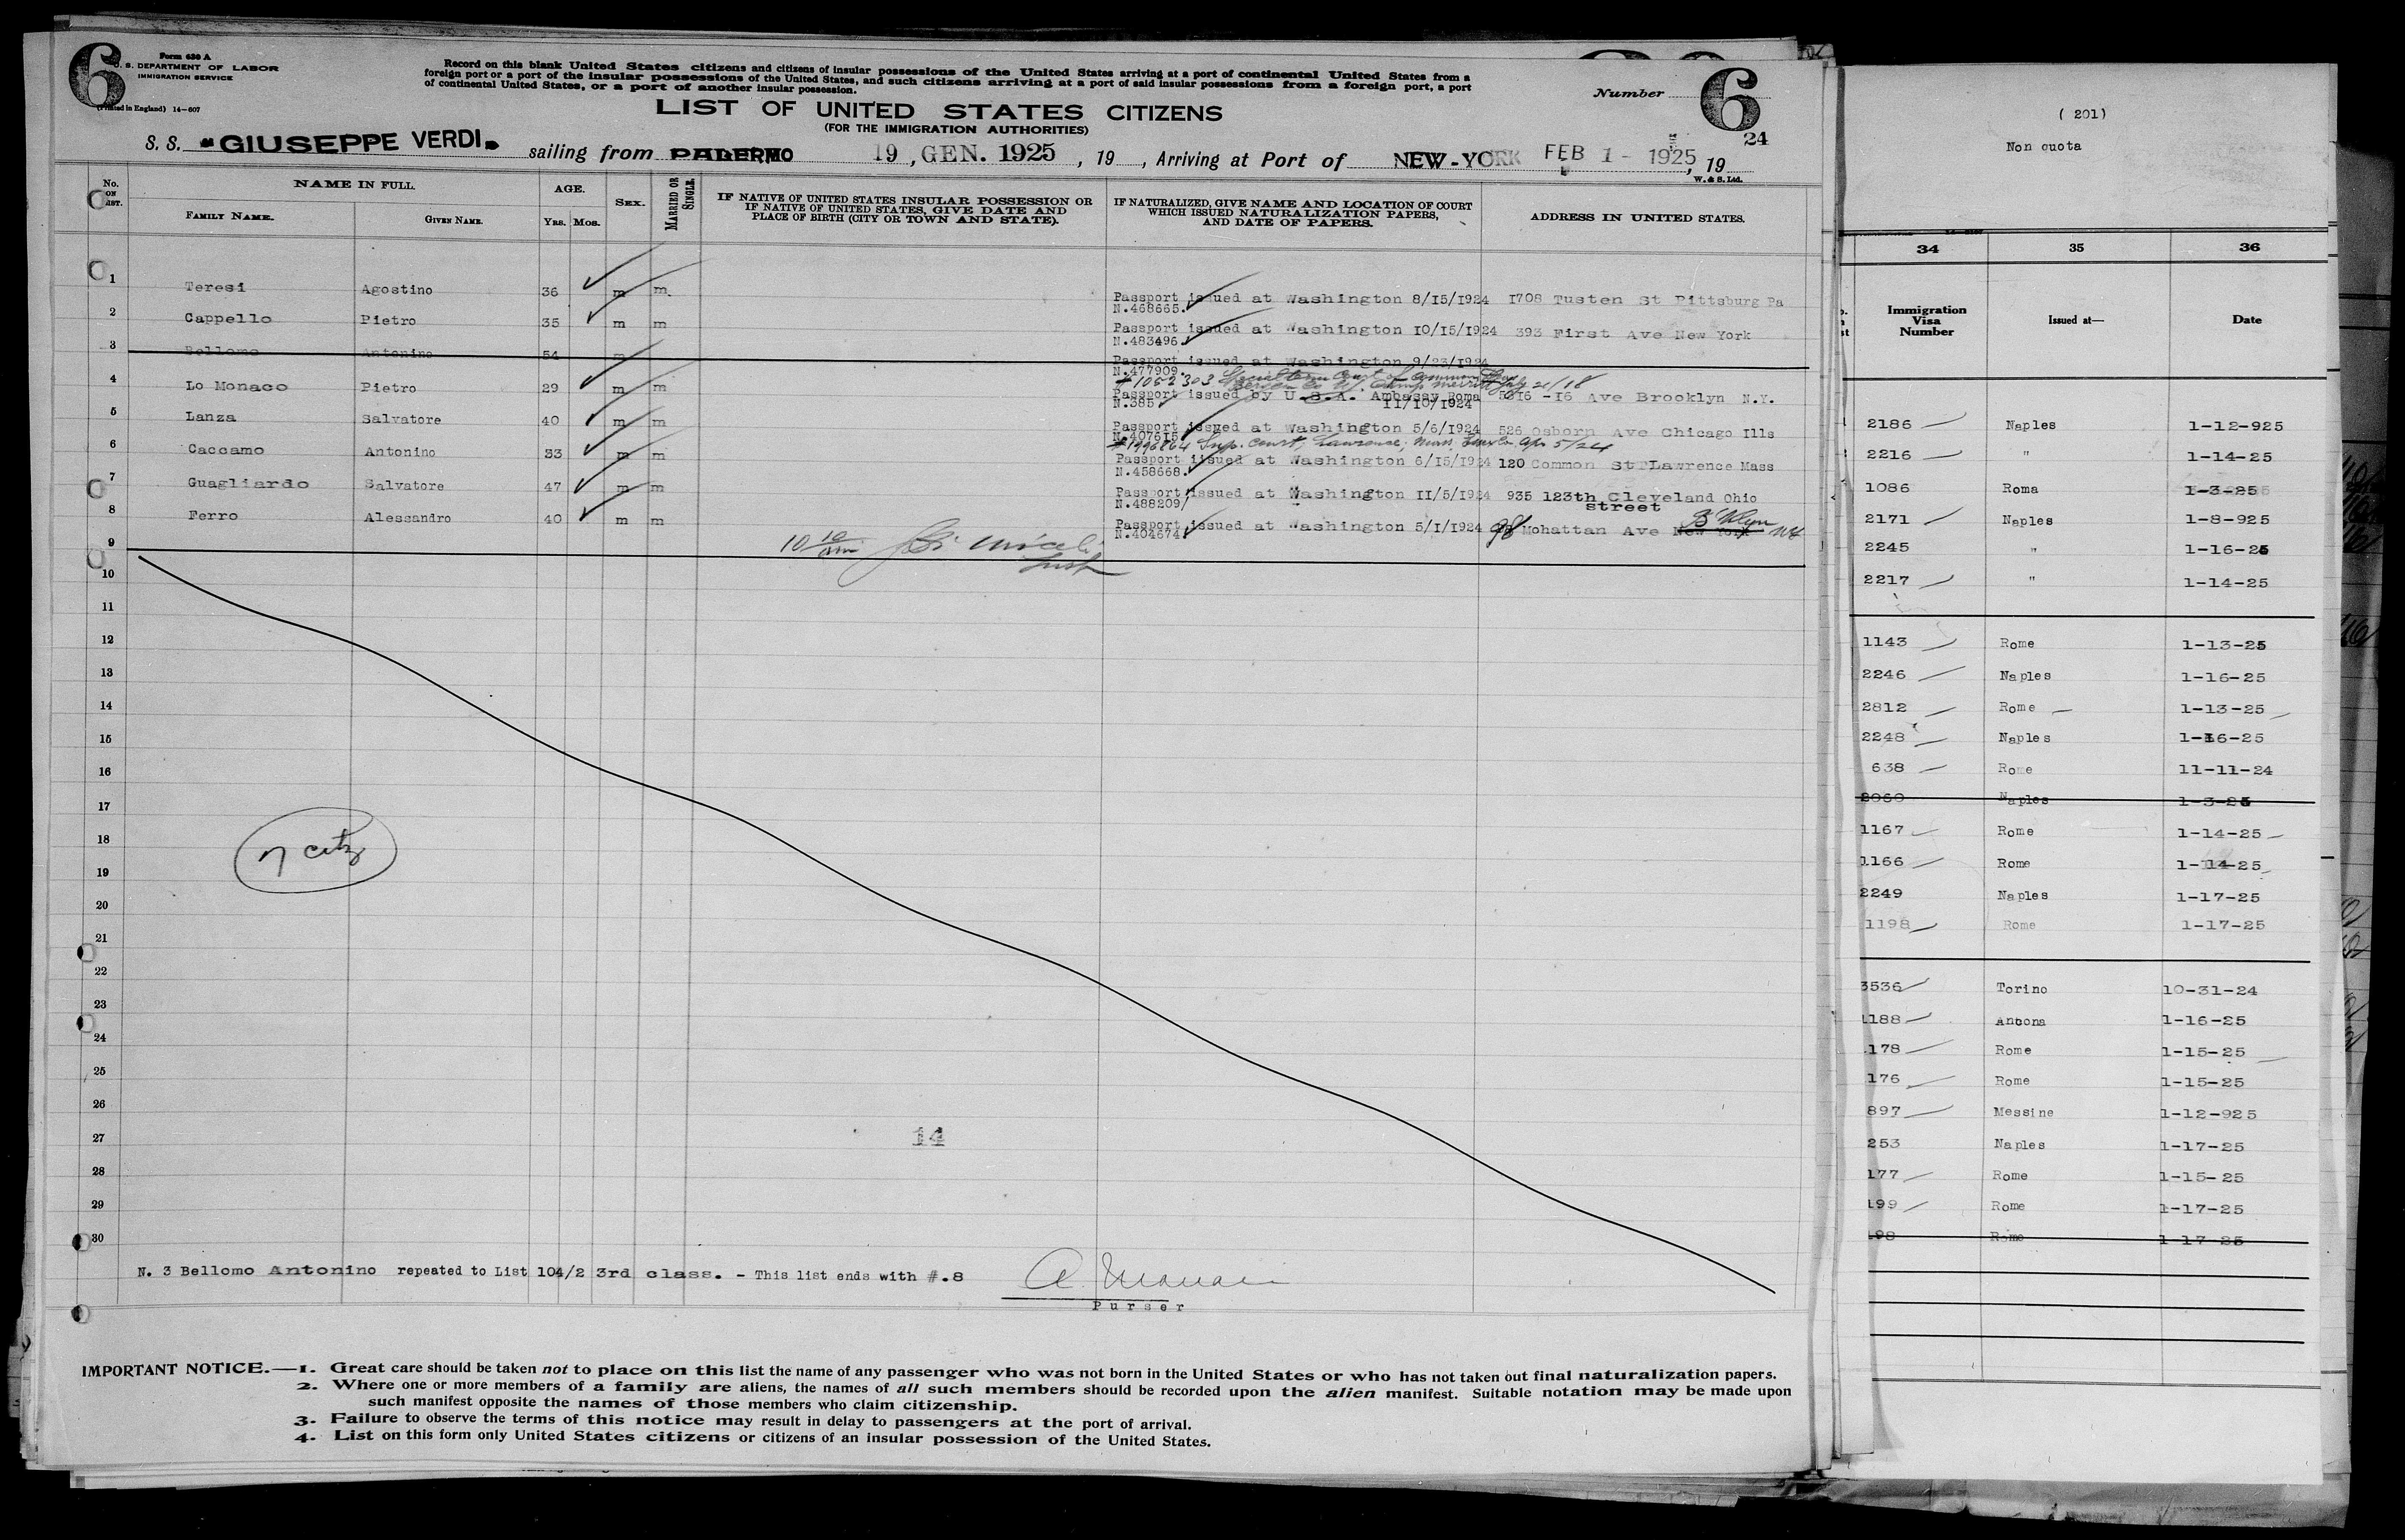 6
Form 630 A
U. S. DEPARTMENT OF LABOR
IMMIGRATION SERVICE
(Printed in England) 14—607
Record on this blank United States citizens and citizens of insular possessions of the United States arriving at a port of continental United States from a
foreign port or a port of the insular possessions of the United States, and such citizens arriving at a port of said insular possessions from a foreign port, a port
of continental United States, or a port of another insular possession.
Number 6
24
LIST OF UNITED STATES CITIZENS
(FOR THE IMMIGRATION AUTHORITIES)
S. S. "GIUSEPPE VERDI" sailing from PALERMO 19, GEN. 1925, 19 , Arriving at Port of NEW-YORK FEB 1 - 1925, 19
W. & S. Ltd.
No. ON LIST.
NAME IN FULL.
FAMILY NAME.
GIVEN NAME.
AGE.
YRS. MOS.
SEX.
MARRIED OR SINGLE.
IF NATIVE OF UNITED STATES INSULAR POSSESSION OR
IF NATIVE OF UNITED STATES, GIVE DATE AND
PLACE OF BIRTH (CITY OR TOWN AND STATE).
IF NATURALIZED, GIVE NAME AND LOCATION OF COURT
WHICH ISSUED NATURALIZATION PAPERS,
AND DATE OF PAPERS.
ADDRESS IN UNITED STATES.
1 Teresi Agostino 36 m m. Passport issued at Washington 8/15/1924 1708 Tusten St Pittsburg Pa
N.468665.
2 Cappello Pietro 35 m m Passport issued at Washington 10/15/1924 393 First Ave New York
N.483496
3 Bellomo Antonino 54 m Passport issued at Washington 9/23/1924
N.477909.
#1052303 Court of Common Pleas
Bergen Co N.J. Camp Merritt July 21/18
4 Lo Monaco Pietro 29 m m Passport issued by U.S.A. Ambassy Roma 5616 -16 Ave Brooklyn N.Y.
N.385 11/10/1924
5 Lanza Salvatore 40 m m Passport issued at Washington 5/6/1924 526 Osborn Ave Chicago Ills
N.407615
#1996864 Sup. Court, Lawrence, Mass. Essex Co. Apr 5/24
6 Caccamo Antonino 33 m m Passport issued at Washington 6/15/1924 120 Common St Lawrence Mass
N.458668.
7 Guagliardo Salvatore 47 m m Passport issued at Washington 11/5/1924 935 123th Cleveland Ohio
N.488209/ street
8 Ferro Alessandro 40 m m Passport issued at Washington 5/1/1924 98 Mohattan Ave New York B'klyn NY
N.404674
9
10 10 am Miceli
Insp
10
11
12
13
14
15
16
17
18
19
20
21
22
23
24
25
26
27
28
29
30
7 citz
14
N. 3 Bellomo Antonino repeated to List 104/2 3rd class. - This list ends with #.8
Purser
IMPORTANT NOTICE.—1. Great care should be taken not to place on this list the name of any passenger who was not born in the United States or who has not taken out final naturalization papers.
2. Where one or more members of a family are aliens, the names of all such members should be recorded upon the alien manifest. Suitable notation may be made upon
such manifest opposite the names of those members who claim citizenship.
3. Failure to observe the terms of this notice may result in delay to passengers at the port of arrival.
4. List on this form only United States citizens or citizens of an insular possession of the United States.
(201)
Non quota
34 35 36
Immigration Visa Number Issued at— Date
2186 Naples 1-12-925
2216 " 1-14-25
1086 Roma 1-3-25
2171 Naples 1-8-925
2245 " 1-16-25
2217 " 1-14-25
1143 Rome 1-13-25
2246 Naples 1-16-25
2812 Rome 1-13-25
2248 Naples 1-16-25
638 Rome 11-11-24
2060 Naples 1-3-25
1167 Rome 1-14-25
1166 Rome 1-14-25
2249 Naples 1-17-25
1198 Rome 1-17-25
3536 Torino 10-31-24
1188 Ancona 1-16-25
178 Rome 1-15-25
176 Rome 1-15-25
897 Messine 1-12-925
253 Naples 1-17-25
177 Rome 1-15-25
199 Rome 1-17-25
198 Rome 1-17-25